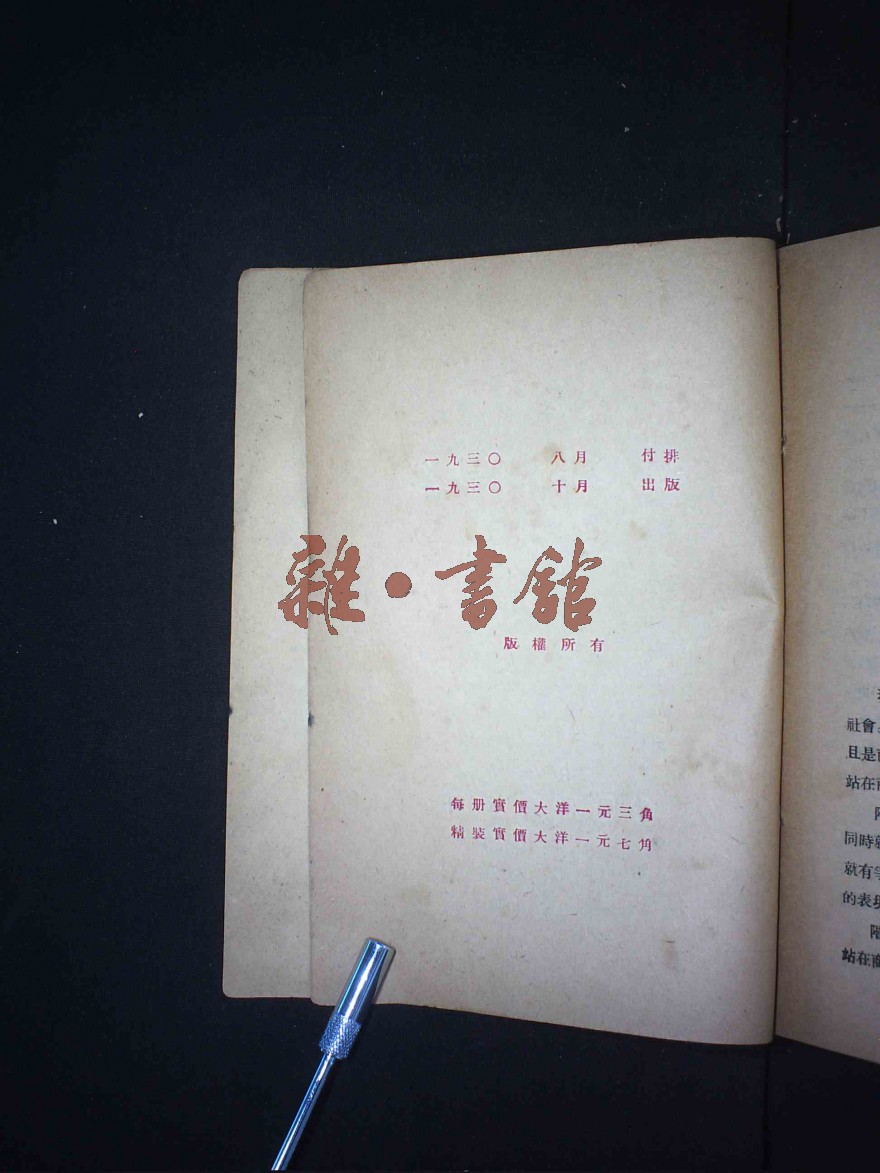 一九三〇 八月 付排
一九三〇 十月 出版
雜·書館
版權所有
每册實價大洋一元三角
精裝實價大洋一元七角
社會
且是
站在
同時
就有
的表現
階
站在